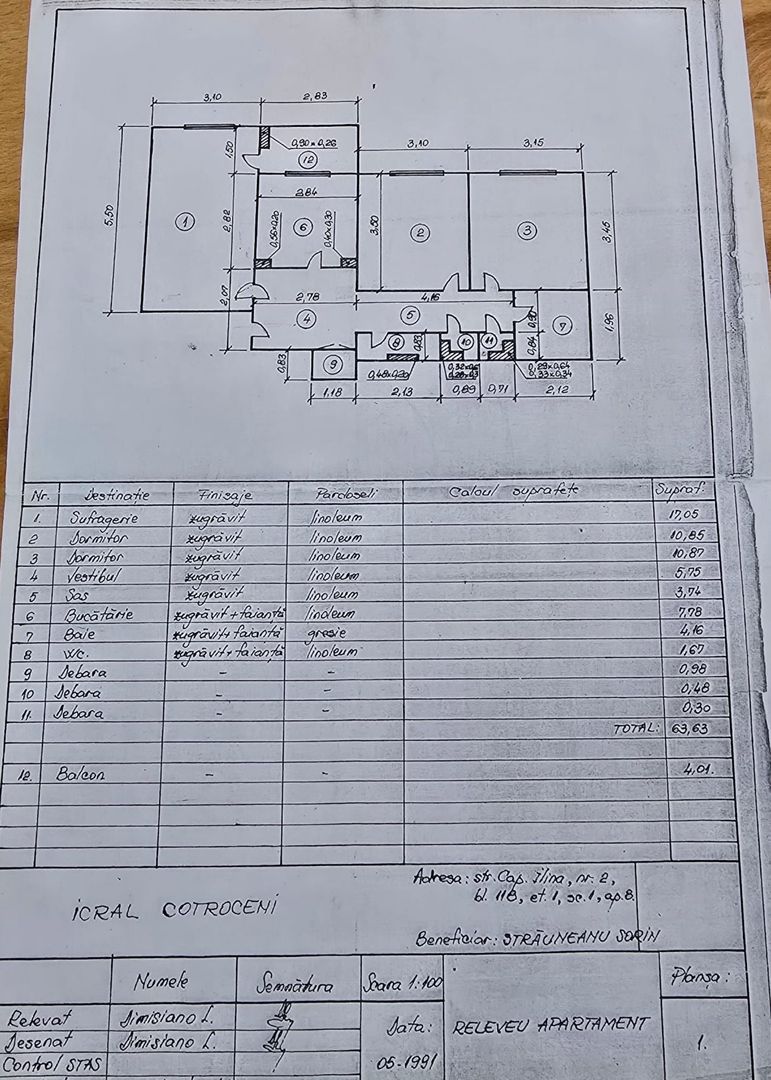 3,10 2,83
1,50 0,90x0,26 12
3,10 3,15
5,50 1 2,82 2,84 6 0,56x0,20 0,40x0,30 3,50 2 3 3,45
2,07 2,78 4 4,16 5 0,90 7 1,96
0,83 9 8 0,83 10 11 0,84
0,48x0,20 0,29x0,64
0,33x0,34
1,18 2,13 0,89 0,71 2,12
Nr. Destinație Finisaje Pardoseli Calcul suprafețe Supraf.
1. Sufragerie zugrăvit linoleum 17,05
2 Dormitor zugrăvit linoleum 10,85
3 Dormitor zugrăvit linoleum 10,87
4 Vestibul zugrăvit linoleum 5,75
5 Sas zugrăvit linoleum 3,74
6 Bucătărie zugrăvit+faianță linoleum 7,78
7 Baie zugrăvit+faianță gresie 4,16
8 W.c. zugrăvit+faianță linoleum 1,67
9 Debara - - 0,98
10 Debara - - 0,48
11. Debara - - 0,30
TOTAL: 63,63
12. Balcon - - 4,01.
ICRAL COTROCENI
Adresa: str. Cap. Ilina, nr. 2,
bl. 11B, et. 1, sc. 1, ap. 8.
Beneficiar: STRĂUNEANU SORIN
Numele Semnătura Scara 1:100 Planșa:
Relevat Dimisiano L. Data: RELEVEU APARTAMENT 1.
Desenat Dimisiano L.
Control STAS 05-1991